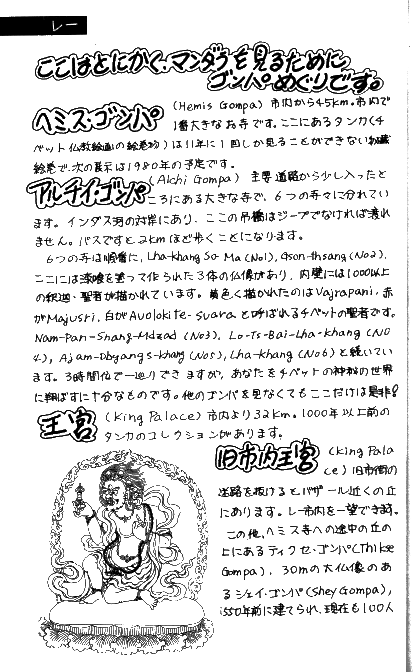 レー
ここはとにかく、マンダラを見るために
ゴンパめぐりです。
ヘミス・ゴンパ (Hemis Gompa) 市内から45km。市内で
1番大きなお寺です。ここにあるタンカ(チ
ベット仏教絵画の絵巻物)は11年に1回しか見ることができない秘蔵
絵巻で、次の展示は1980年の予定です。
アルチイ・ゴンパ (Alchi Gompa) 主要道路から少し入ったと
ころにある大きな寺で、6つの寺々に分れてい
ます。インダス河の対岸にあり、ここの吊橋はジープでなければ渡れ
ません。バスですと2kmほど歩くことになります。
6つの寺は順番に、Lha-khang So Ma (No1), Qson-thsang (No2).
ここには漆喰を塗って作られた3体の仏像があり、内壁には1000以上
の釈迦・聖者が描かれています。黄色く描かれたのはVajrapani, 赤
がMajusri, 白がAvolokite-suaraと呼ばれるチベットの聖者です。
Nam-Pan-Shang-Mdzad (No3), Lo-Ts-Bai-Lha-khang (NO
4), Ajam-Dbyangs-khang (No5), Lha-khang (No6) と続いてい
ます。3時間位で一巡りできますが、あなたをチベットの神秘の世界
に翔ばすに十分なものです。他のゴンパを見なくてもここだけは是非!
王宮 (King Palace) 市内より32km。1000年以上前の
タンカのコレクションがあります。
旧市内王宮 (King Pala
ce) 旧市街の
道路を抜けるとバザール近くの丘
にあります。レー市内を一望できます。
この他、ヘミス寺への途中の丘の
上にあるティクセ・ゴンパ(Thikse
Gompa), 30mの大仏像のあ
るシェイ・ゴンパ(Shey Gompa),
550年前に建てられ、現在も100人